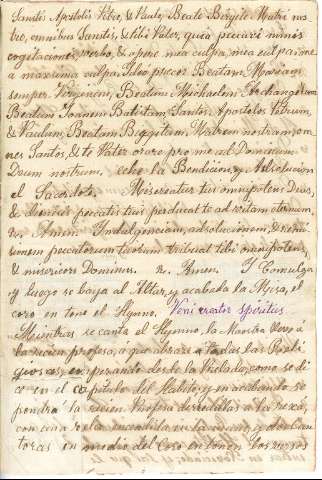 Sanctis Apostolis Petro, & Paulo, Beate Birgite Matri nos
tre, omnibus Sanctis, & tibi Pater, quia peccavi nimis
cogitatione, verbo, & opere mea culpa, mea culpa, mea
maxima culpa. Ideo precor Beatam Mariam
semper Virginem, Beatum Michaelem Archangelum
Beatum Joanem Batistam, Santos Apostolos Petrum,
& Paulum, Beatam Birgitam, Matrem nostram, om
nes Santos, & te Pater orare pro me ad Dominum
Deum nostrum, eche la Bendicion, y Absolucion
el Sacerdote. Misereatur tui omnipotens Deus,
& dimissis peccatis tuis perducat te ad vitam eternam.
Amen. Indulgenciam, adsolucionem, & remi
sionem peccatorum tuorum tribuat tibi omnipotens,
& misericors Dominus. R. Amen. Y Comulga
y luego se baya al Altar, y acabada la Misa, el
coro en tone el Hymno, Veni creator spiritus
Mientras se canta el Hymno, la Maestra lleve á
la recien profesa, a que abrace a todas las Reli
giosas, empezando desde la Prelada, como se di
ce en el capitulo del Habito, y en acabando se
pondra la recien Profesa de rodillas a la rexa,
con una vela encendida en la mano, y dos Can
toras en medio del Coro entonen los versos